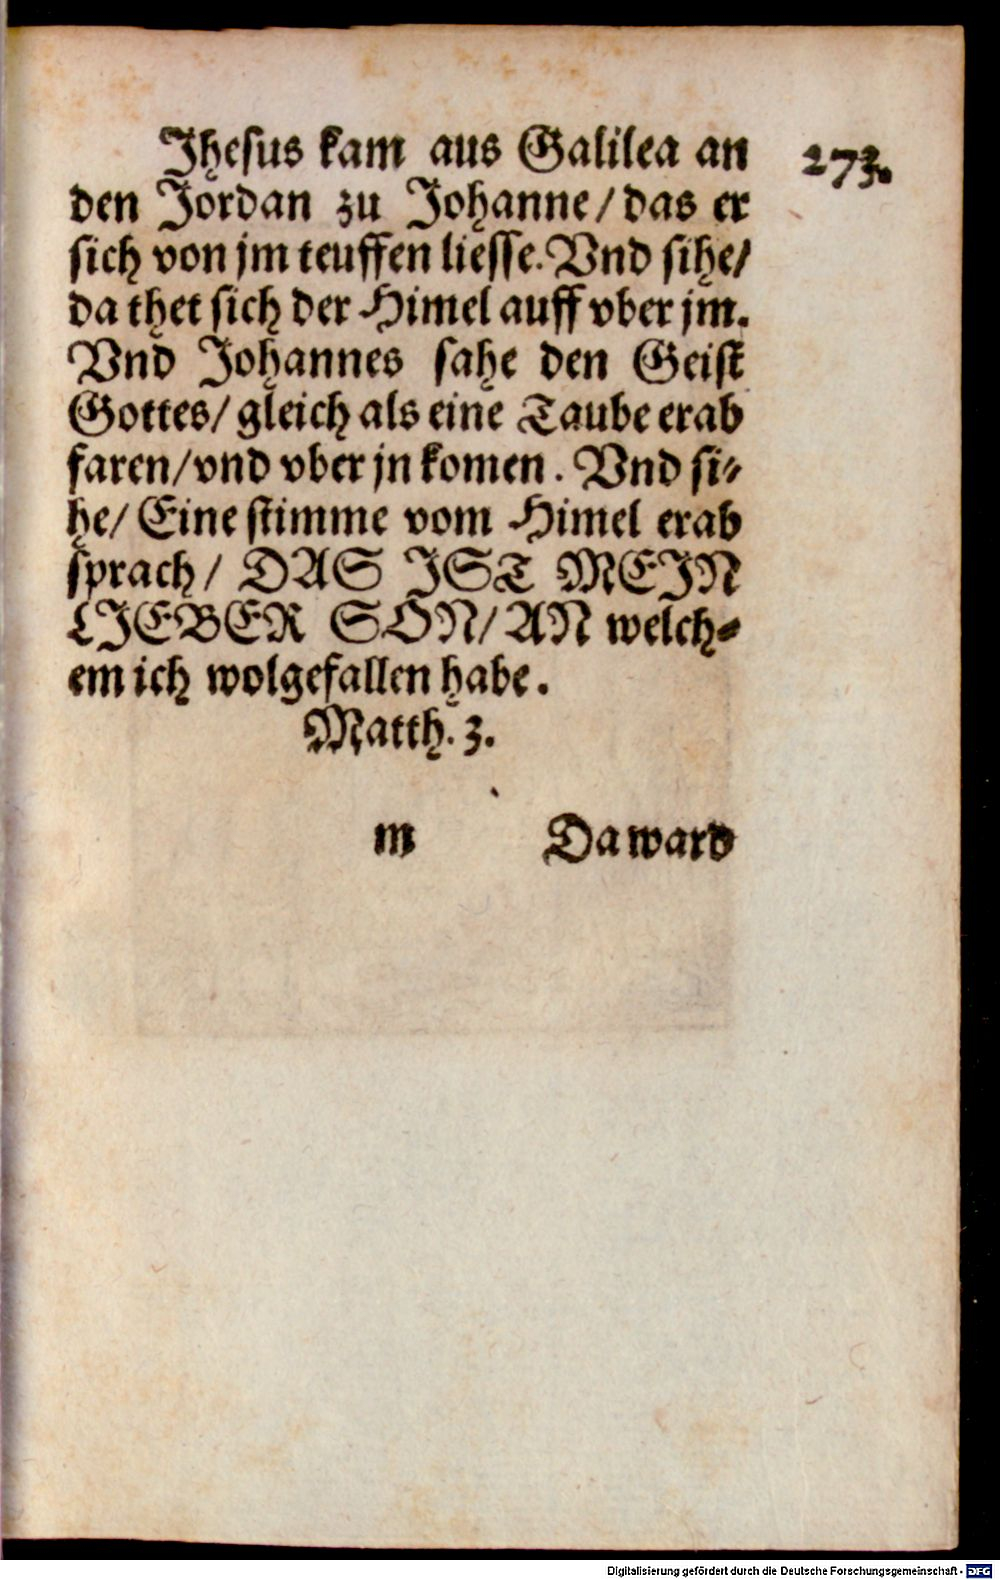 Jhesus kam aus Galilea an
273.
den Jordan zu Johanne/das er
sich von jm teuffen liesse. Vnd sihe/
da thet sich der Himel auff vber jm.
Vnd Johannes sahe den Geist
Gottes/ gleich als eine Taube erab
faren/vnd vber jn komen. Vnd si⸗
he/ Eine stimme vom Himel erab
sprach/ DAS JST MEJN
LJEBER SON/AN welch⸗
em ich wolgefallen habe.
Matth. 3.
m Da ward
Digitalisierung gefördert durch die Deutsche Forschungsgemeinschaft - DFG